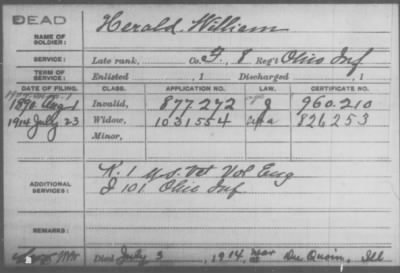 DEAD
NAME OF SOLDIER: Herald, William
SERVICE: Late rank, Co. G, 8 Reg't Ohio Inf
TERM OF SERVICE: Enlisted , 1 Discharged , 1
DATE OF FILING. CLASS. APPLICATION NO. LAW. CERTIFICATE NO.
1890 Aug 1 Invalid, 877.272 J 960.210
1914 July 23 Widow, 1031554 826253
Minor,
ADDITIONAL SERVICES: K. 1 U.S. Vet Vol Eng
D 101 Ohio Inf
REMARKS:
Died July 3, 1914, near Du Quoin, Ill